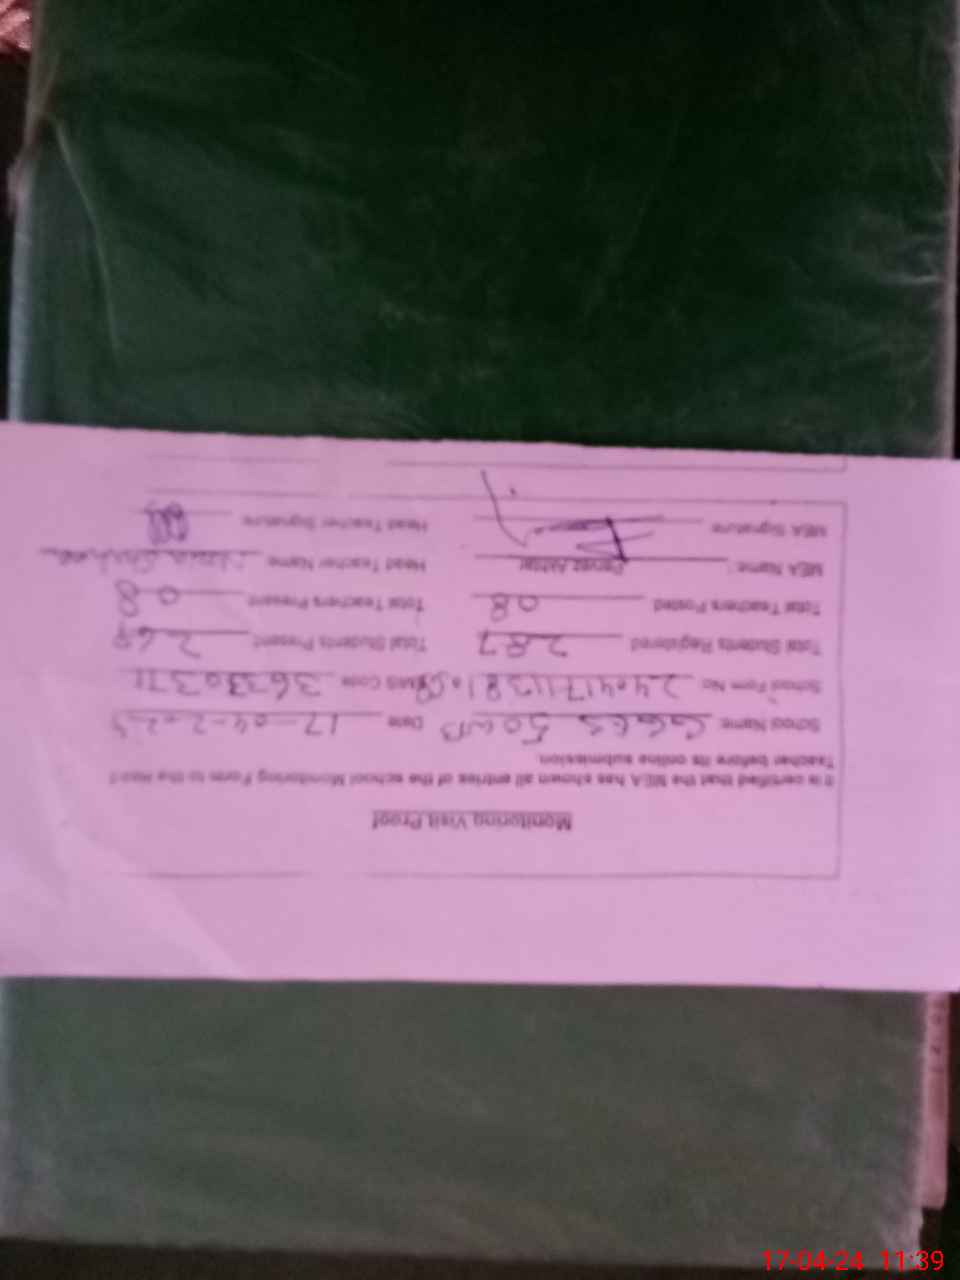 Monitoring Visit Proof
It is certified that the MEA has shown all entries of the school Monitoring Form to the Head
Teacher before its online submission.
School Name: GGES 50 WB Date 17-04-2024
School Form No: EMIS Code 36330371
Total Students Registered 287 Total Students Present
Total Teachers Posted 08 Total Teachers Present 08
MEA Name: Pervez Akhtar Head Teacher Name
MEA Signature Head Teacher Signature
17-04-24 11:39